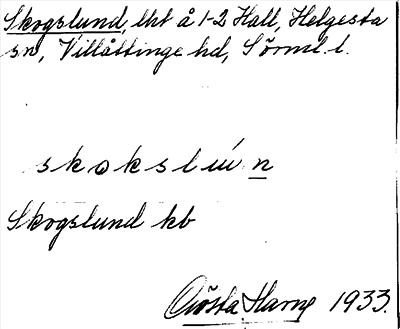 Skogslund, lht å 1-2 Hall, Helgesta
sn, Villåttinge hd, Sörml. l.
skokslún
Skogslund kb
Gösta Harne 1933.